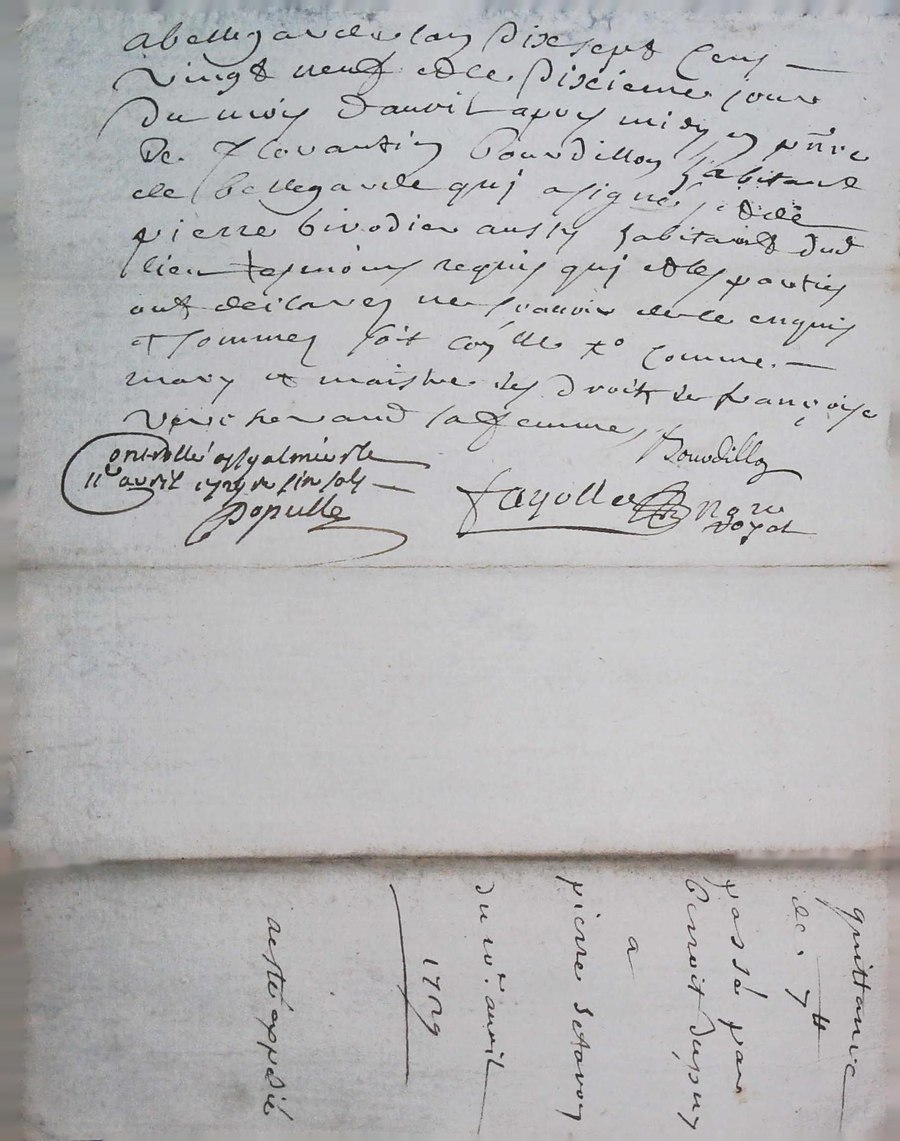 a bellegarde lan dix sept cens
vingt neuf et le dixieme jour
du mois d'avril apres midy en pñce
de Florantin Bourdillon habitant
de bellegarde qui a signé et de
pierre birodier aussy habitant dud
lieu tesmoins requis qui et les parties
ont declarez ne scavoir de ce enquis
et sommez led comme
mary et maistre des droits de françoise
Vercherand sa femme
Bourdillon
Controllé a St galmier le
11e avril 1729 six sols
Populle
fayolle
Nore
royal
quittance
de 7 ₶
passé par
benoit dupuy
a
pierre
du 10e avril
1729
acte expedié